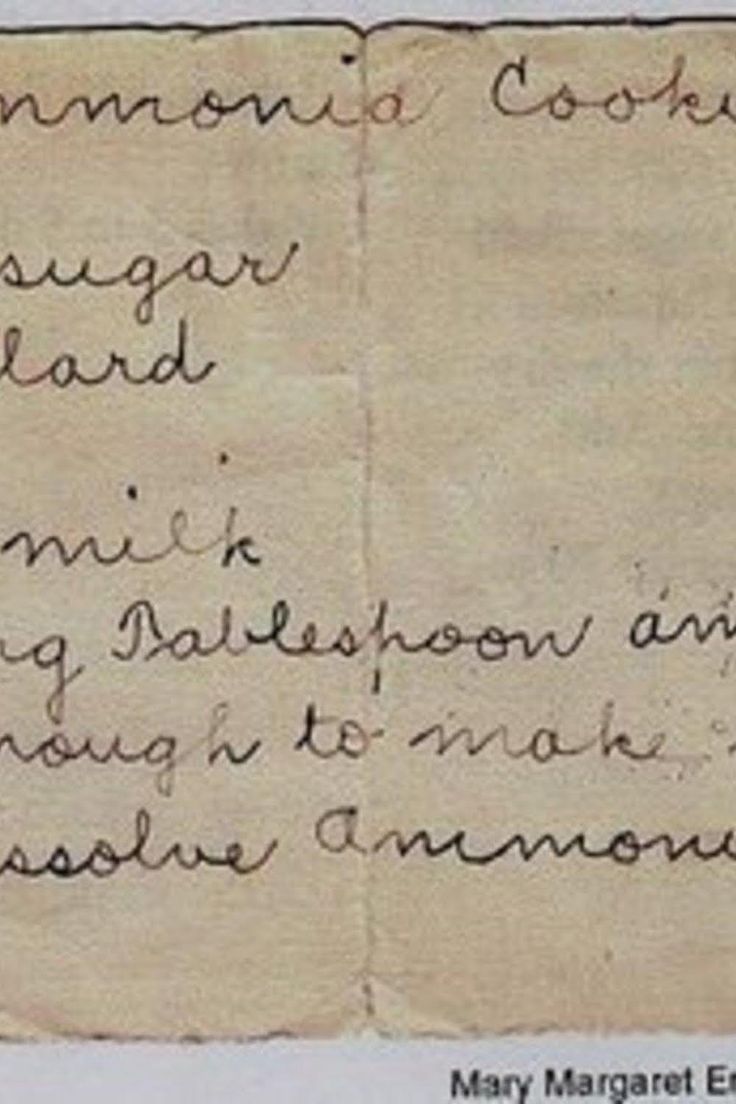 mmonia Cooki
sugar
lard
milk
ng Tablespoon am
nough to make
ssolve Ammoni
Mary Margaret Er